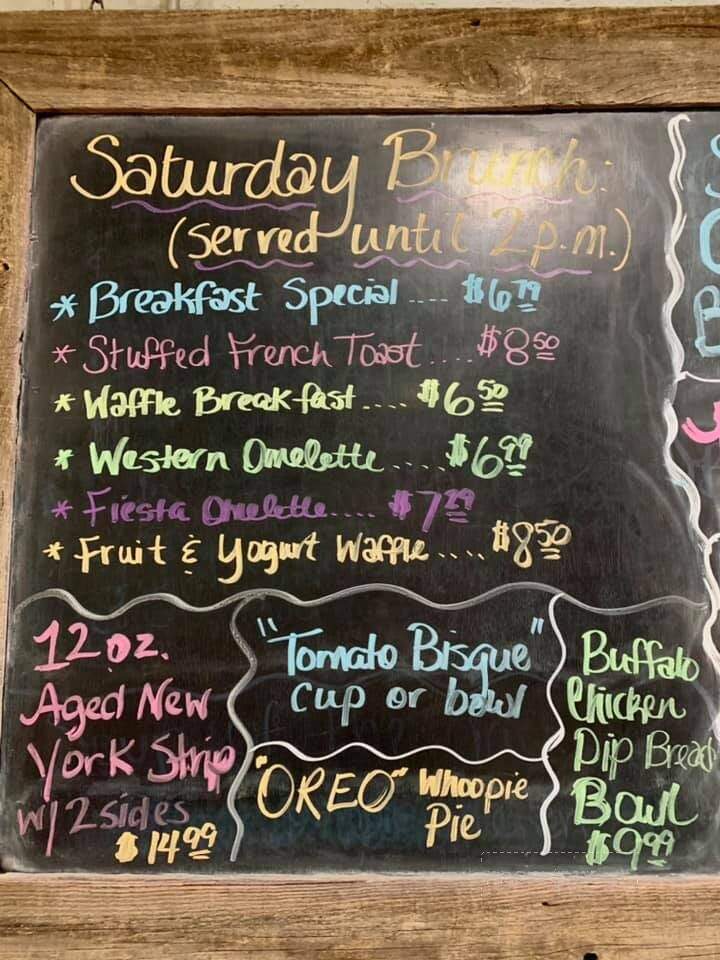 Saturday Brunch:
(served until 2p.m.)
* Breakfast Special .... $6.79
* Stuffed French Toast .... $8.50
* Waffle Breakfast .... $6.50
* Western Omelette .... $6.99
* Fiesta Omelette .... $7.29
* Fruit & Yogurt Waffle .... $8.50
12 oz.
Aged New
York Strip
w/ 2 sides
$14.99
"Tomato Bisque"
cup or bowl
"OREO" Whoopie
Pie
Buffalo
Chicken
Dip Bread
Bowl
$9.99